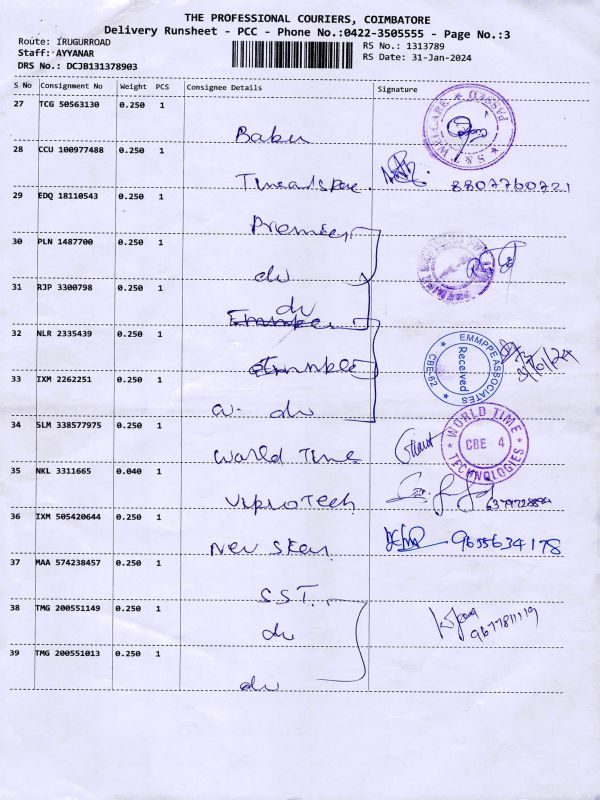 THE PROFESSIONAL COURIERS, COIMBATORE
Delivery Runsheet - PCC - Phone No.:0422-3505555 - Page No.:3
Route: IRUGURROAD
RS No.: 1313789
Staff: AYYANAR
RS Date: 31-Jan-2024
DRS No.: DCJB131378903
S No Consignment No Weight PCS Consignee Details Signature
27 TCG 50563130 0.250 1
Babu
28 CCU 100977488 0.250 1
8807760721
29 EDQ 18110543 0.250 1
Premier
30 PLN 1487700 0.250 1
do
31 RJP 3300798 0.250 1
do
32 NLR 2335439 0.250 1
EMMPPE ASSOCIATES
Received
CBE-62
31/01/24
33 IXM 2262251 0.250 1
do
34 SLM 338577975 0.250 1
World Time
WORLD TIME
CBE 4
TECHNOLOGIES
35 NKL 3311665 0.040 1
Viprotech
36 IXM 505420644 0.250 1
New Sken
9655634178
37 MAA 574238457 0.250 1
S.S.T.
38 TMG 200551149 0.250 1
do
39 TMG 200551013 0.250 1
do